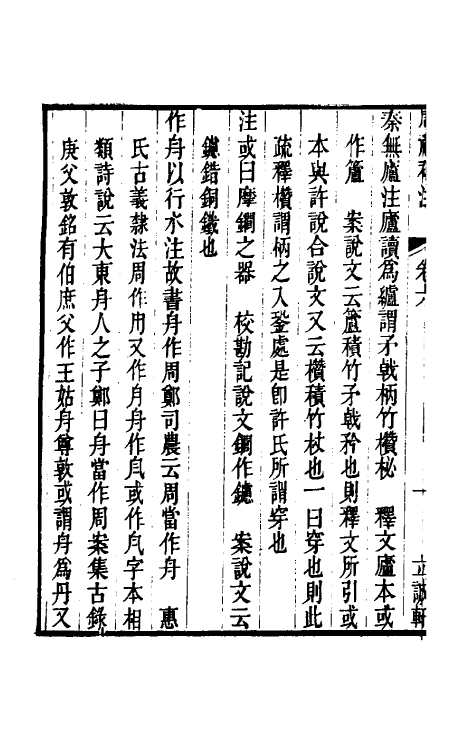 秦無廬注廬讀爲纑謂矛戟柄竹欑柲　釋文廬本或
作籚　案說文云籚積竹矛戟矜也則釋文所引或
本與許說合說文又云欑積竹杖也一曰穿也則此
疏釋欑謂柄之入銎處是卽許氏所謂穿也
注或曰摩鐗之器　校勘記說文鐗作鑢　案說文云
鑢錯銅鐵也
作舟以行水注故書舟作周鄭司農云周當作舟　惠
氏古義隸法周作用又作月舟作凢或作凡字本相
類詩說云大東舟人之子鄭曰舟當作周案集古錄
庚父敦銘有伯庶父作王姑舟尊敦或謂舟爲丹又
卷六